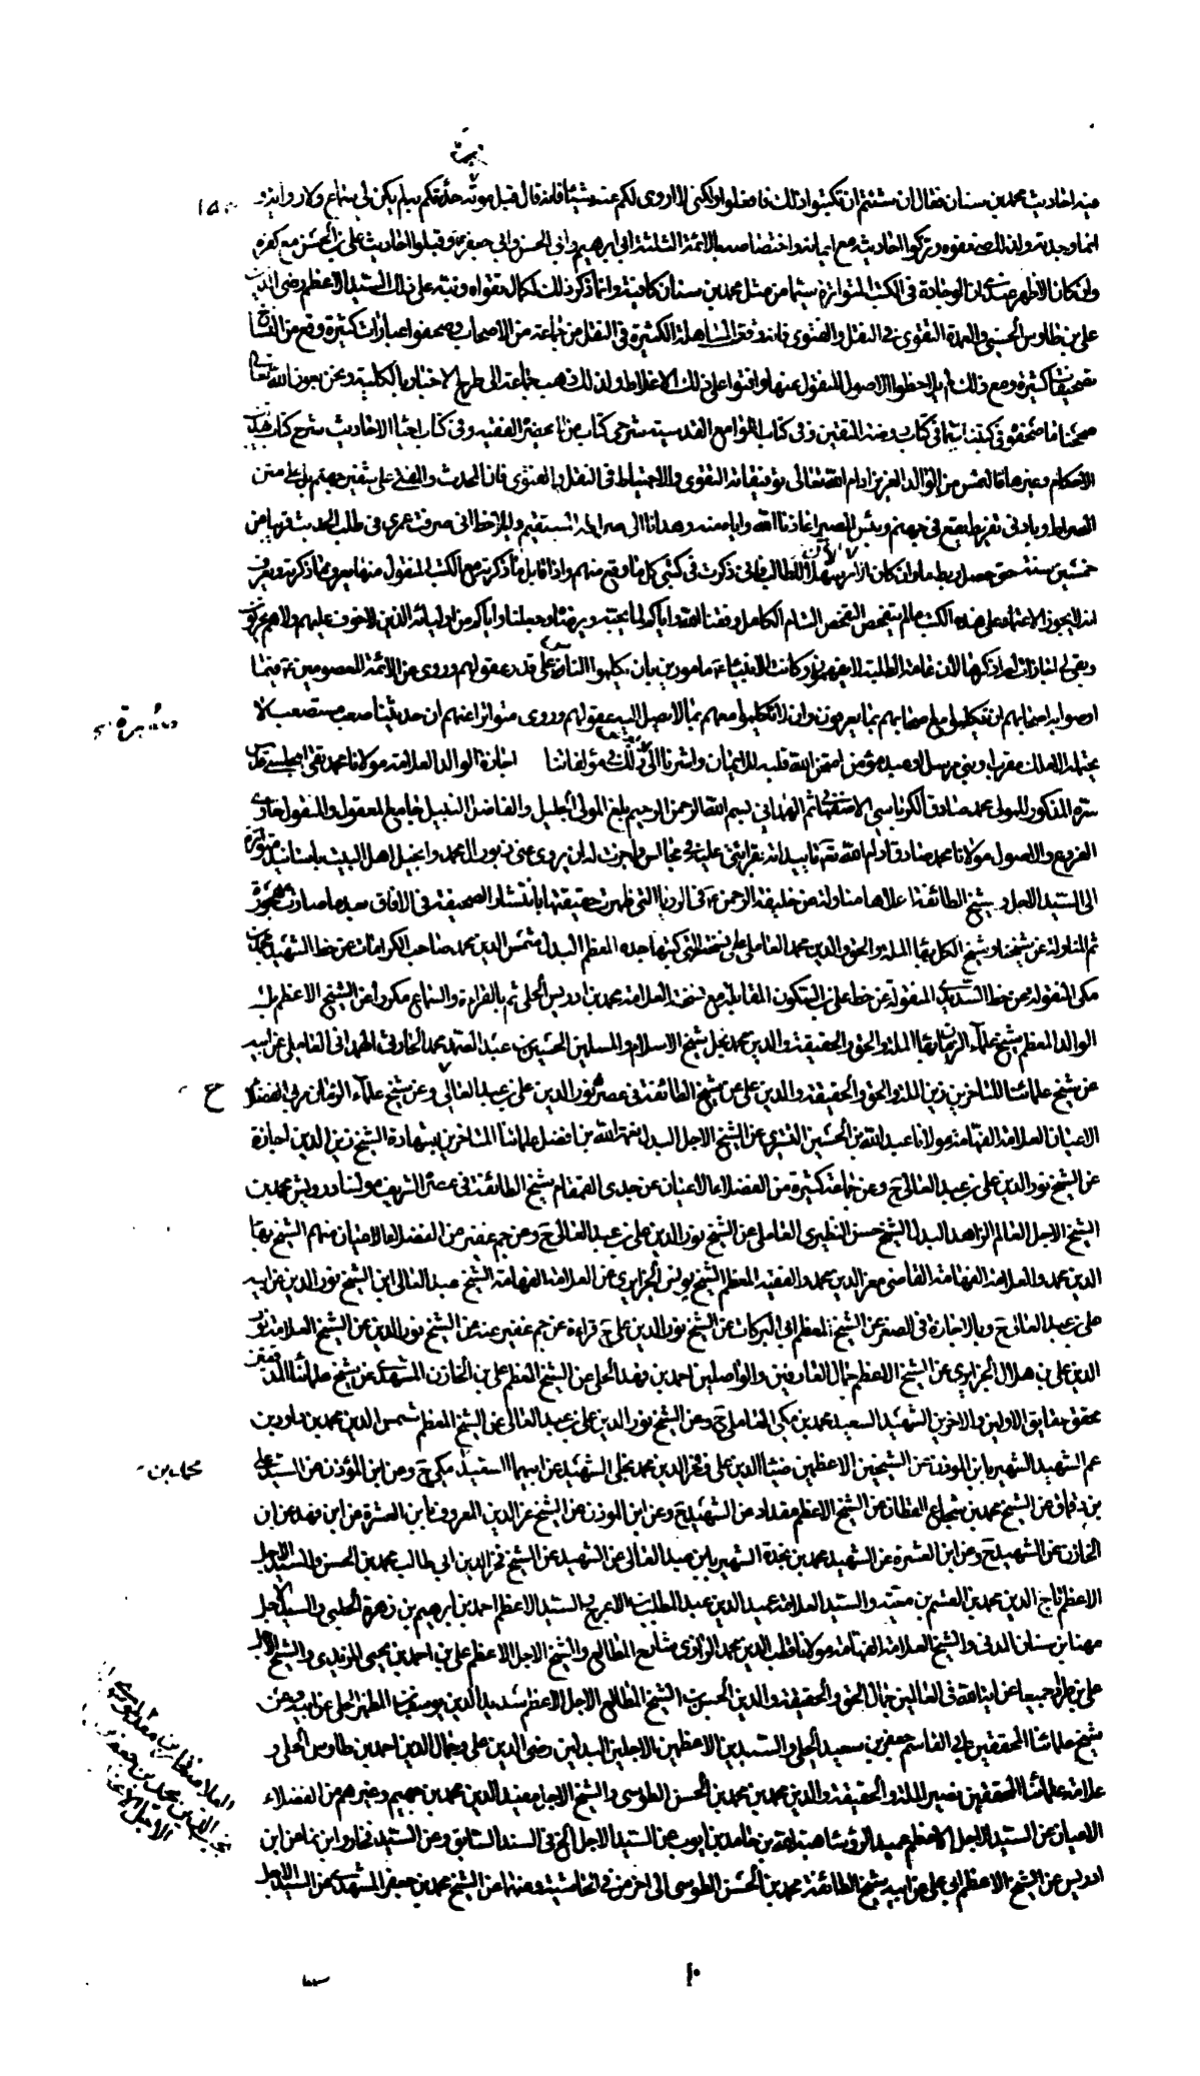 فيه احاديث محمد بن سنان فقال ان شئتم ان تكتبوا ذلك فافعلوا ولكني لا اروي لكم عنه شيئا فانه قال قبل موته كلما حدثتكم به لم يكن لي سماع ولا رواية و
انما وجدته ولذلك ضعفوه وتركوا احاديثه مع ايمانه واختصاصه بالائمة الثلثة ابي ابرهيم وابي الحسن وابي جعفر وقبلوا احاديث علي بن الحسن مع كفره
وان كان الاظهر عندي ان الوجادة في الكتب المتواترة سيما من مثل محمد بن سنان كافية وانما ذكر ذلك لكمال تقواه ونبه على ذلك السيد الاعظم رضي الدين
علي بن طاوس الحسني والعمدة التقوى في النقل والفتوى فانه وقع المساهلة الكثيرة في النقل من جماعة من الاصحاب وصحفوا عبارات كثيرة ووقع من النساخ
تصحيفات كثيرة ومع ذلك لم يلاحظوا الاصول المنقول عنها وافتوا على ذلك الاغلاط ولذلك ذهب جماعة الى طرح الاخبار بالكلية ونحن بعون الله تعالى
صححنا ما صحفوه في كتبنا سيما في كتاب روضة المتقين وفي كتاب اللوامع القدسية شرحي كتاب من لا يحضره الفقيه وفي كتاب احياء الاحاديث شرح كتاب تهذيب
الاحكام وغيرها فالتمس من الولد العزيز ادام الله تعالى توفيقاته التقوى والاحتياط في النقل والفتوى فان المحدث والمفتي على شفير جهنم بل على متن
الصراط وبادنى تفريط يقع في جهنم وبئس المصير اعاذنا الله واياه منه وهدانا الى صراطه المستقيم وليلاحظ اني صرفت عمري في طلب الحديث قريبا من
خمسين سنة حتى حصل ربط ما وان كان الان امر سهلا للطالب فاني ذكرت في كتبي كل ما وقع منهم واذا قابل ما ذكرته مع الكتب المنقول منها يعرف ما ذكرته ويعرف
انه لا يجوز الاعتماد على هذه الكتب ما لم يتفحص التفحص التام الكامل وفقنا الله واياكم لما يحبه ويرضاه وجعلنا واياكم من اوليائه الذين لا خوف عليهم ولا هم يحزنون
وبقي لنا زيارات لم اذكرها لان عامة الطلبة لا يفهمون وكانت الانبياء مامورين بان يكلموا الناس على قدر عقولهم وروي عن الائمة المعصومين انهم
اوصوا اصحابهم ان تكلموا مع اصحابهم بما يعرفون وان لا تكلموا معهم بما لا يصل اليه عقولهم وروي متواترا عنهم ان حديثنا صعب مستصعب لا
يحتمله الا ملك مقرب او نبي مرسل او عبد مؤمن امتحن الله قلبه للايمان واشرنا الى ذلك في مؤلفاتنا اجازة الوالد العلامة مولانا محمد تقي المجلسي قدس
سره المذكور للمولى محمد صادق الكرباسي الاصفهاني ثم الهمداني بسم الله الرحمن الرحيم بلغ المولى الجليل والفاضل النبيل جامع المعقول والمنقول حاوي
الفروع والاصول مولانا محمد صادق ادام الله تعالى تاييداته بقرائتي عليه في مجالس واجزت له ان يروي عني زبور ال محمد وانجيل اهل البيت باسانيد متواترة
الى السيد الاجل وشيخ الطائفة اعلاها مناولة من خليفة الرحمن في الرويا التي ظهرت حقيقتها بانتشار الصحيفة في الافاق بعد ما صارت مهجورة
ثم المناولة عن شيخنا وشيخ الكل بهاء الملة والحق والدين محمد العاملي على نسخة التي كتبها جده المعظم البدل شمس الدين محمد صاحب الكرامات عن خط الشهيد محمد بن
مكي المنقولة عن خط السديدي المنقولة عن خط علي بن السكون المقابلة مع نسخة العلامة محمد بن ادريس الحلي ثم بالقراءة والسماع مكررا عن الشيخ الاعظم بل
الوالد المعظم شيخ علماء الزمان بهاء الملة والحق والحقيقة والدين محمد نجل شيخ الاسلام والمسلمين الحسين بن عبد الصمد الحارثي الهمداني العاملي عن ابيه
عن شيخ علمائنا المتاخرين زين الملة والحق والحقيقة والدين علي عن شيخ الطائفة في عصره نور الدين علي بن عبد العالي وعن شيخ علماء الزمان مربي الفضلاء
الاعيان العلامة الفهامة مولانا عبد الله بن الحسين التستري عن الشيخ الاجل البدل نعمة الله بن افضل علمائنا المتاخرين بشهادة الشيخ زين الدين اجازة
عن الشيخ نور الدين علي بن عبد العالي ح وعن جماعة كثيرة من الفضلاء الاعيان عن جدي القمقام شيخ الطائفة في عصره الشريف مولنا درويش محمد بن
الشيخ الاجل العالم الزاهد البدل الشيخ حسن النطنزي العاملي عن الشيخ نور الدين علي بن عبد العالي ح وعن جم غفير من الفضلاء الاعيان منهم الشيخ بهاء
الدين محمد والعلامة الفهامة القاضي معز الدين محمد والفقيه المعظم الشيخ يونس الجزايري عن العلامة الفهامة الشيخ عبد العالي ابن الشيخ نور الدين عن ابيه
علي بن عبد العالي ح وبالاجازة في الصغر عن الشيخ المعظم ابي البركات عن الشيخ نور الدين علي ح قراءة عن جم غفير عنه عن الشيخ نور الدين عن الشيخ العلامة نور
الدين علي بن هلال الجزايري عن الشيخ الاعظم جمال العارفين والواصلين احمد بن فهد الحلي عن الشيخ المعظم علي بن الخازن المشهدي عن شيخ علمائنا المدققين
محقق حقايق الاولين والاخرين الشهيد السعيد محمد بن مكي العاملي ح وعن الشيخ نور الدين علي بن عبد العالي عن الشيخ المعظم شمس الدين محمد بن داود بن
عم الشهيد الشهير بابن الموذن عن الشيخين الاعظمين ضياء الدين علي وفخر الدين محمد نجلي الشهيد عن ابيهما السعيد مكي ح وعن ابن المؤذن عن السيد علي
بن دقماق عن الشيخ محمد بن شجاع القطان عن الشيخ الاعظم مقداد عن الشهيد ح وعن ابن الموذن عن الشيخ عز الدين المعروف بابن العشرة عن ابن فهد عن ابن
الخازن عن الشهيد ح وعن ابن العشرة عن الشهيد محمد بن نجدة الشهير بابن عبد العالي عن الشهيد عن الشيخ فخر الدين ابي طالب محمد بن الحسن والسيد الاجل
الاعظم تاج الدين محمد بن القسم بن معية والسيد العلامة عميد الدين عبد المطلب الاعرج والسيد الاعظم احمد بن ابرهيم بن زهرة الحلبي والسيد الاجل
مهنا بن سنان المدني والشيخ العلامة الفهامة مولانا قطب الدين محمد الرازي شارح المطالع والشيخ الاجل الاعظم علي بن احمد بن يحيى المزيدي والشيخ الاجل
علي بن طراد جميعا عن اية الله في العالمين جمال الحق والحقيقة والدين الحسن بن الشيخ الاجل الاعظم سديد الدين يوسف بن المطهر الحلي عن ابيه وعن
شيخ علمائنا المحققين ابي القاسم جعفر بن سعيد الحلي والسيدين الاعظمين الاجلين البدلين رضي الدين علي وجمال الدين احمد بن طاوس الحلي و
علامة علمائنا المحققين نصير الملة والحقيقة والدين محمد بن محمد بن الحسن الطوسي والشيخ الاجل مفيد الدين محمد بن جهيم وغيرهم من الفضلاء
الاعيان عن السيد الاجل الاعظم عميد الرؤساء هبة الله بن حامد بن ايوب عن السيد الاجل الخ في السند السابق وعن السيد فخار وابن نما عن ابن
ادريس عن الشيخ الاعظم ابي علي عن ابيه شيخ الطائفة محمد بن الحسن الطوسي الى اخر من في الحاشية ومنها عن الشيخ محمد بن جعفر المشهدي عن السيد الاجل
ح
محمد بن
١٠